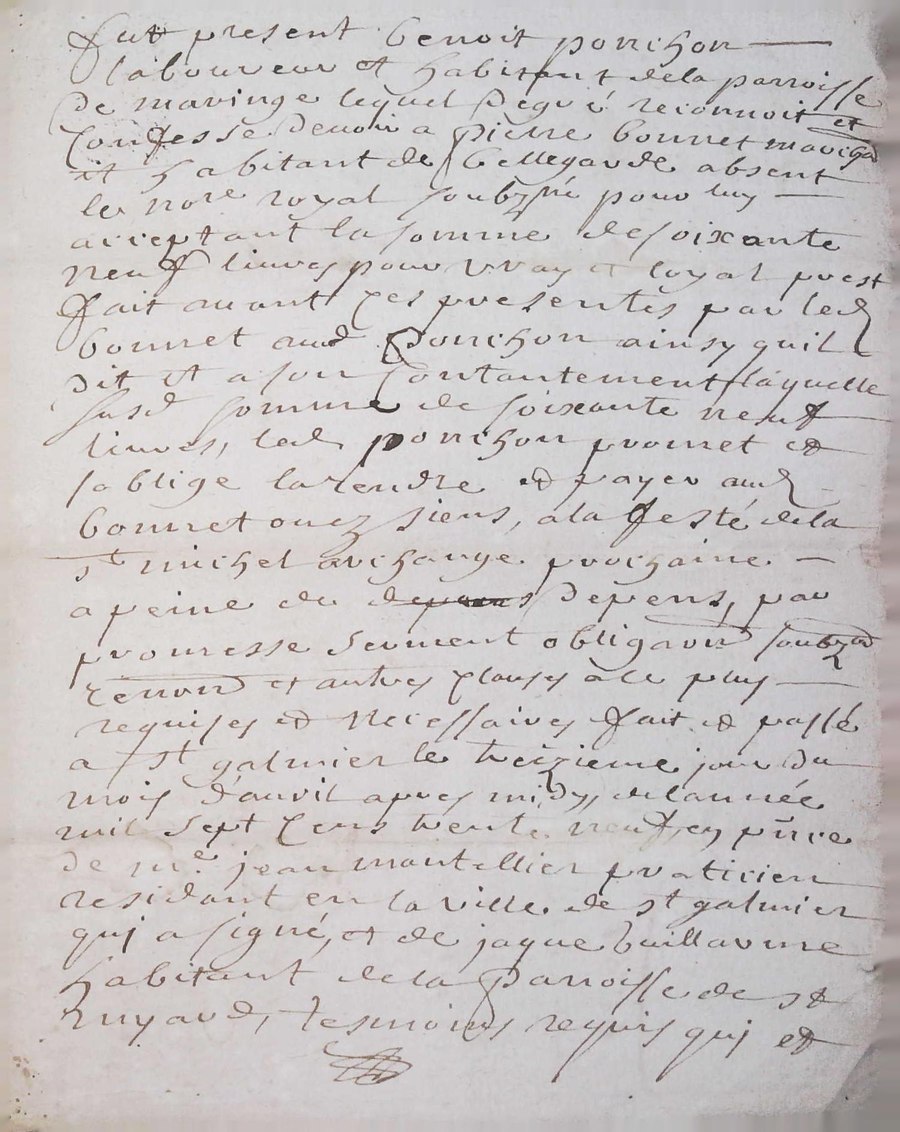 fut present benoit ponchon
laboureur et habitant dela parroisse
de maringe lequel degré reconnoit et
confesse devoir a pierre bonnet
et habitant de bellegarde absent
le nore royal soubzné pour luy
acceptant la somme de soixante
neuf livres pour vray et loyal prest
fait avant ces presentes par led
bonnet aud ponchon ainsy quil
dit et a son contantement laquelle
susd somme de soixante neuf
livres, led ponchon promet et
soblige la rendre et payer aud
bonnet ou ez siens, a la feste dela
st michel archange prochaine
a peine de depens, par
promesse serment obligaōn soubzōn
renonōn et autres clauses a le plus
requises et necessaires fait et passé
a st galmier le treizieme jour du
mois d'avril apres midy, de lannée
mil sept cens trente neuf en pñce
de me jean montellier praticien
residant en la ville de st galmier
qui a signé, et de jaque vuillaume
habitant de la parroisse de st
tesmoins requis qui et